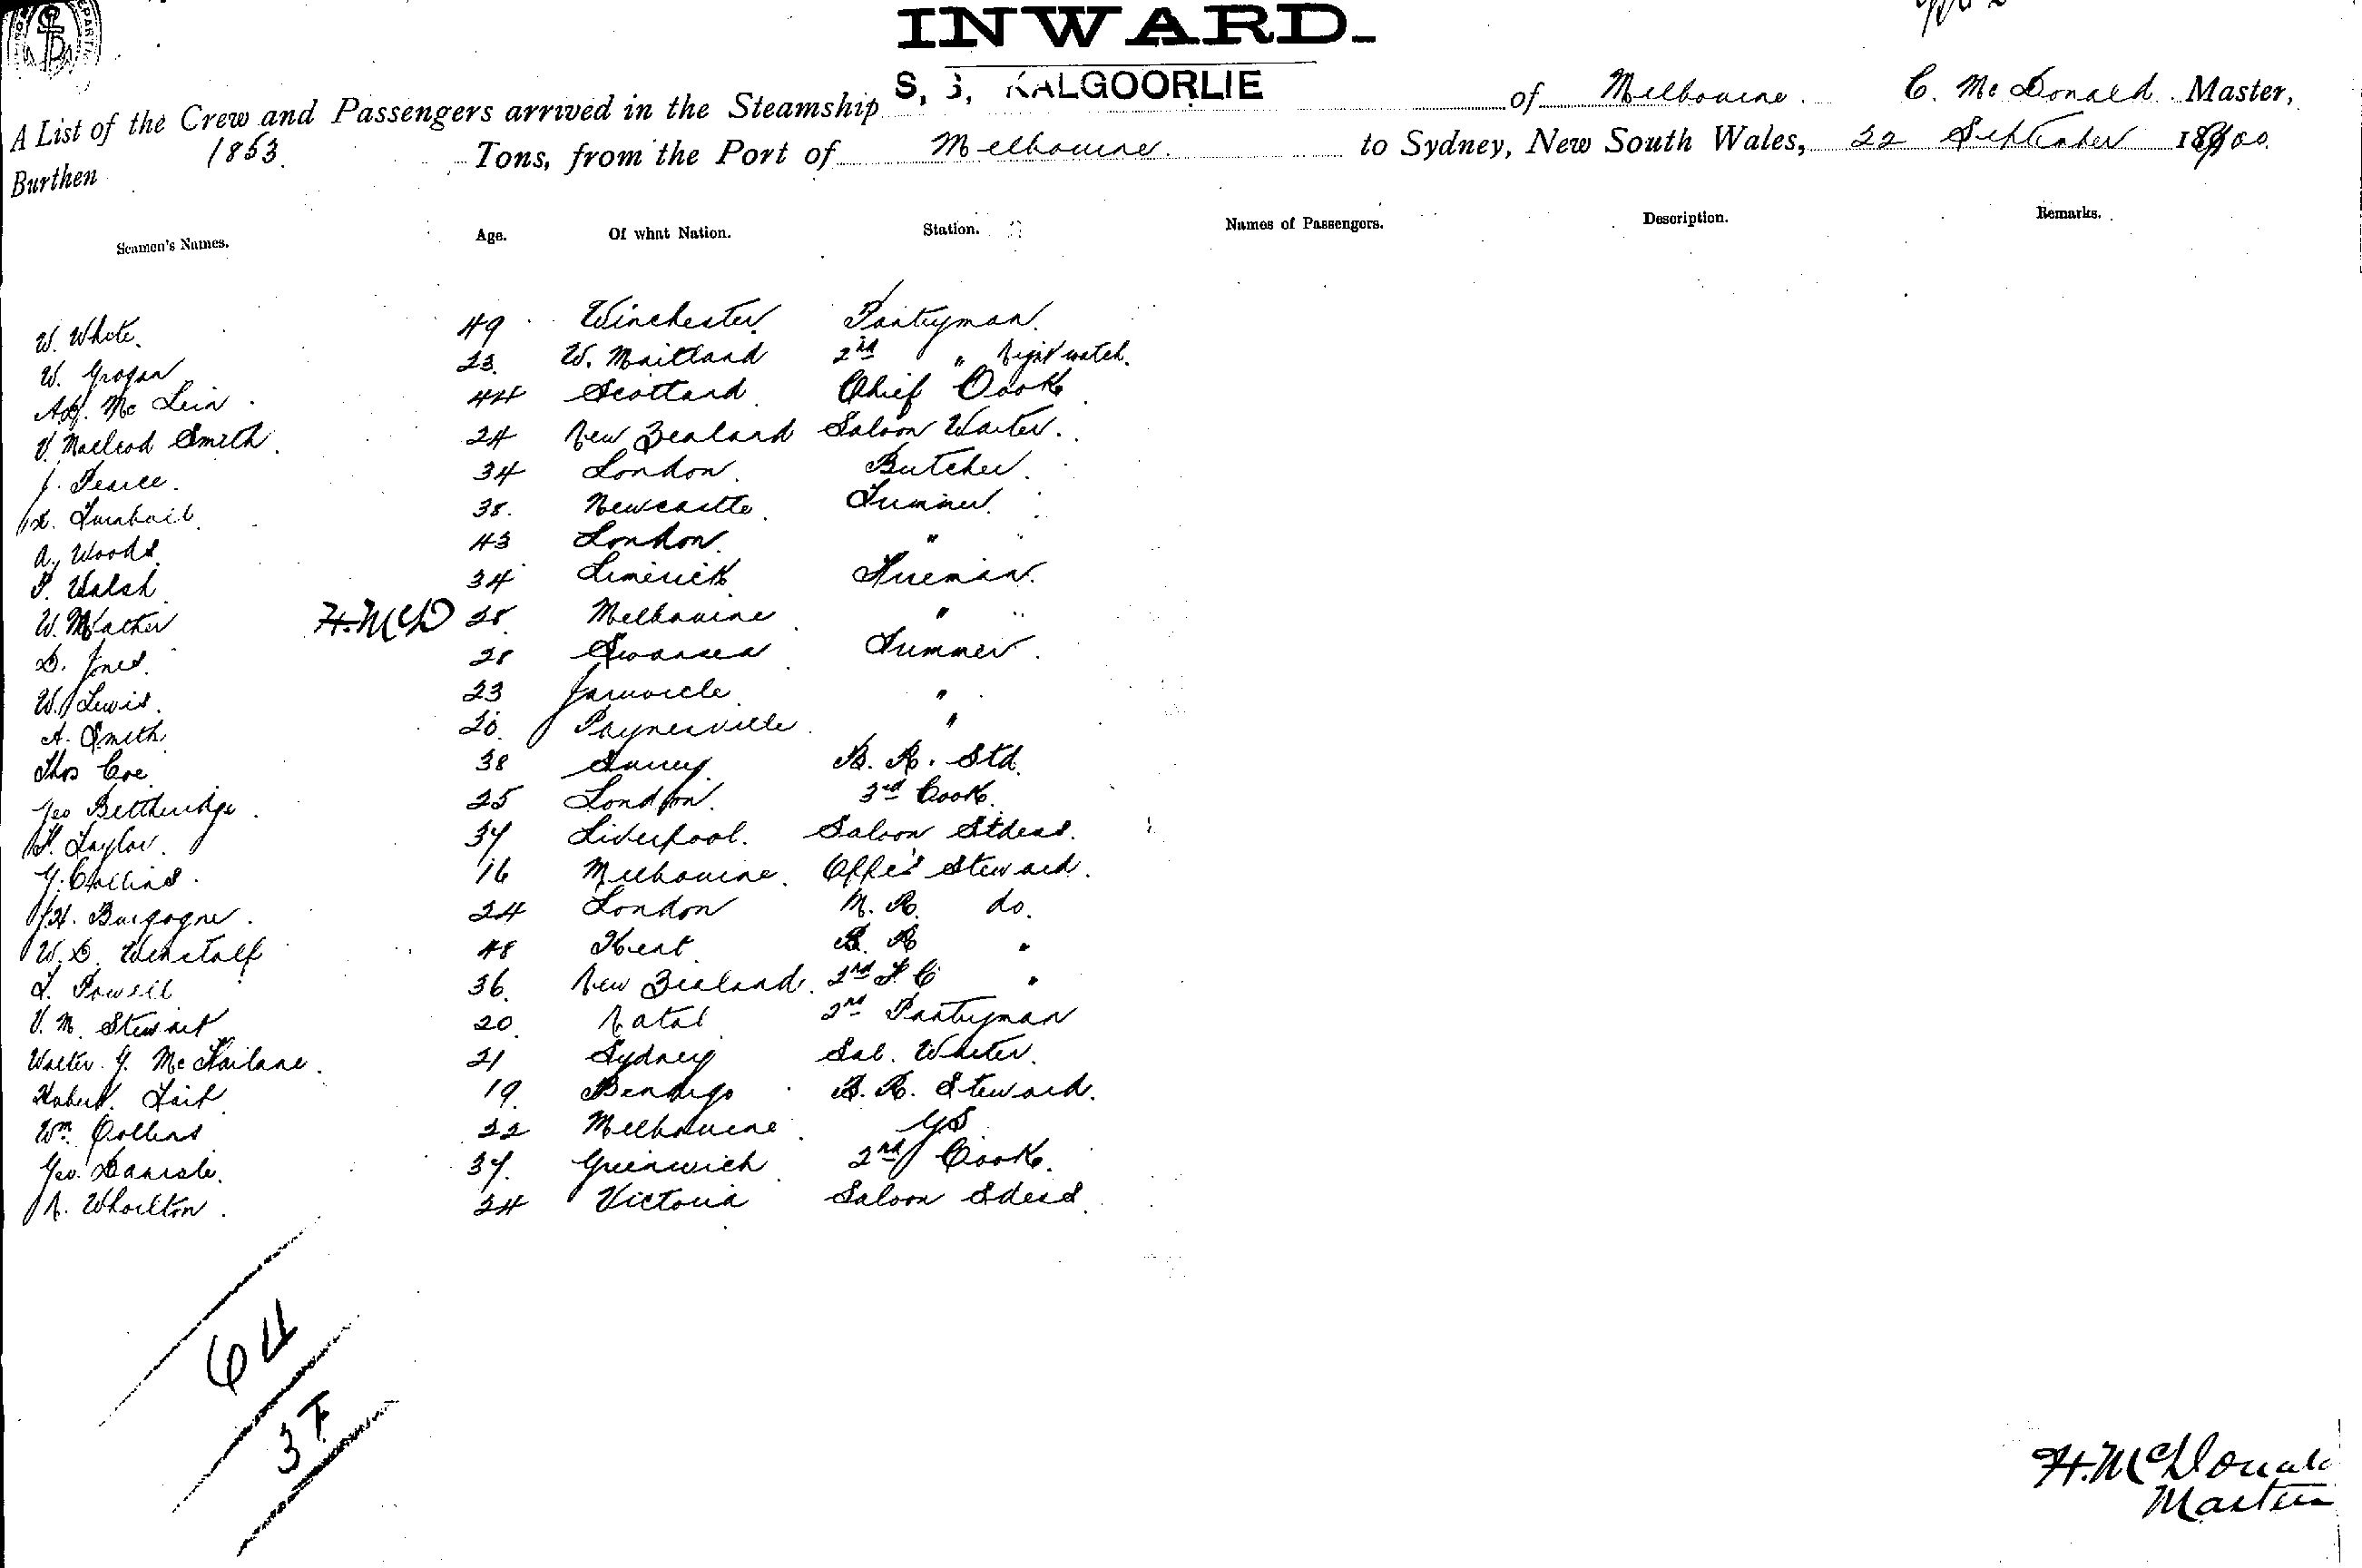 INWARD.
S. S. KALGOORLIE
A List of the Crew and Passengers arrived in the Steamship of Melbourne. C. McDonald Master,
Burthen 1853 Tons, from the Port of Melbourne. to Sydney, New South Wales, 22 September 1900.
Seamen's Names. Age. Of what Nation. Station. Names of Passengers. Description. Remarks.
W. White. 49 Winchester. Pantryman.
W. Grogan 23. W. Maitland 2nd " Night watch.
McLein 44 Scotland Chief Cook
V. Macleod Smith 24 New Zealand Saloon Waiter.
J. Pearce. 34 London. Butcher.
Turnbull 38. Newcastle. Trimmer.
A. Woods. 43 London. "
P. Walsh 34 Limerick Fireman.
W. Mather H.McD 28 Melbourne "
D. Jones. 28 Swansea Trimmer.
W. Lewis. 23 "
A. Smith 20. Paynesville "
Thos Coe 38 Surrey. B. R. Std.
Geo Bettheridge. 25 London. 3rd Cook.
Taylor. 37 Liverpool. Saloon Stdess.
Collins. 16 Melbourne. Offrs Steward.
J.H. Burgogne. 24 London M. R. do.
W. D. 48 Kent B. R "
T. Powell 36. New Zealand. 2nd "
V. M. Stewart 20. Natal 2nd Pantryman
Walter. G. McFarlane. 21 Sydney Sal. Waiter.
Robert. Tait 19. Bendigo B. R. Steward.
Wm Collins 22 Melbourne GS
Geo. 37. Greenwich 2nd Cook.
Whorlton. 24 Victoria Saloon Sdess
64
37
H. McDonald
Master